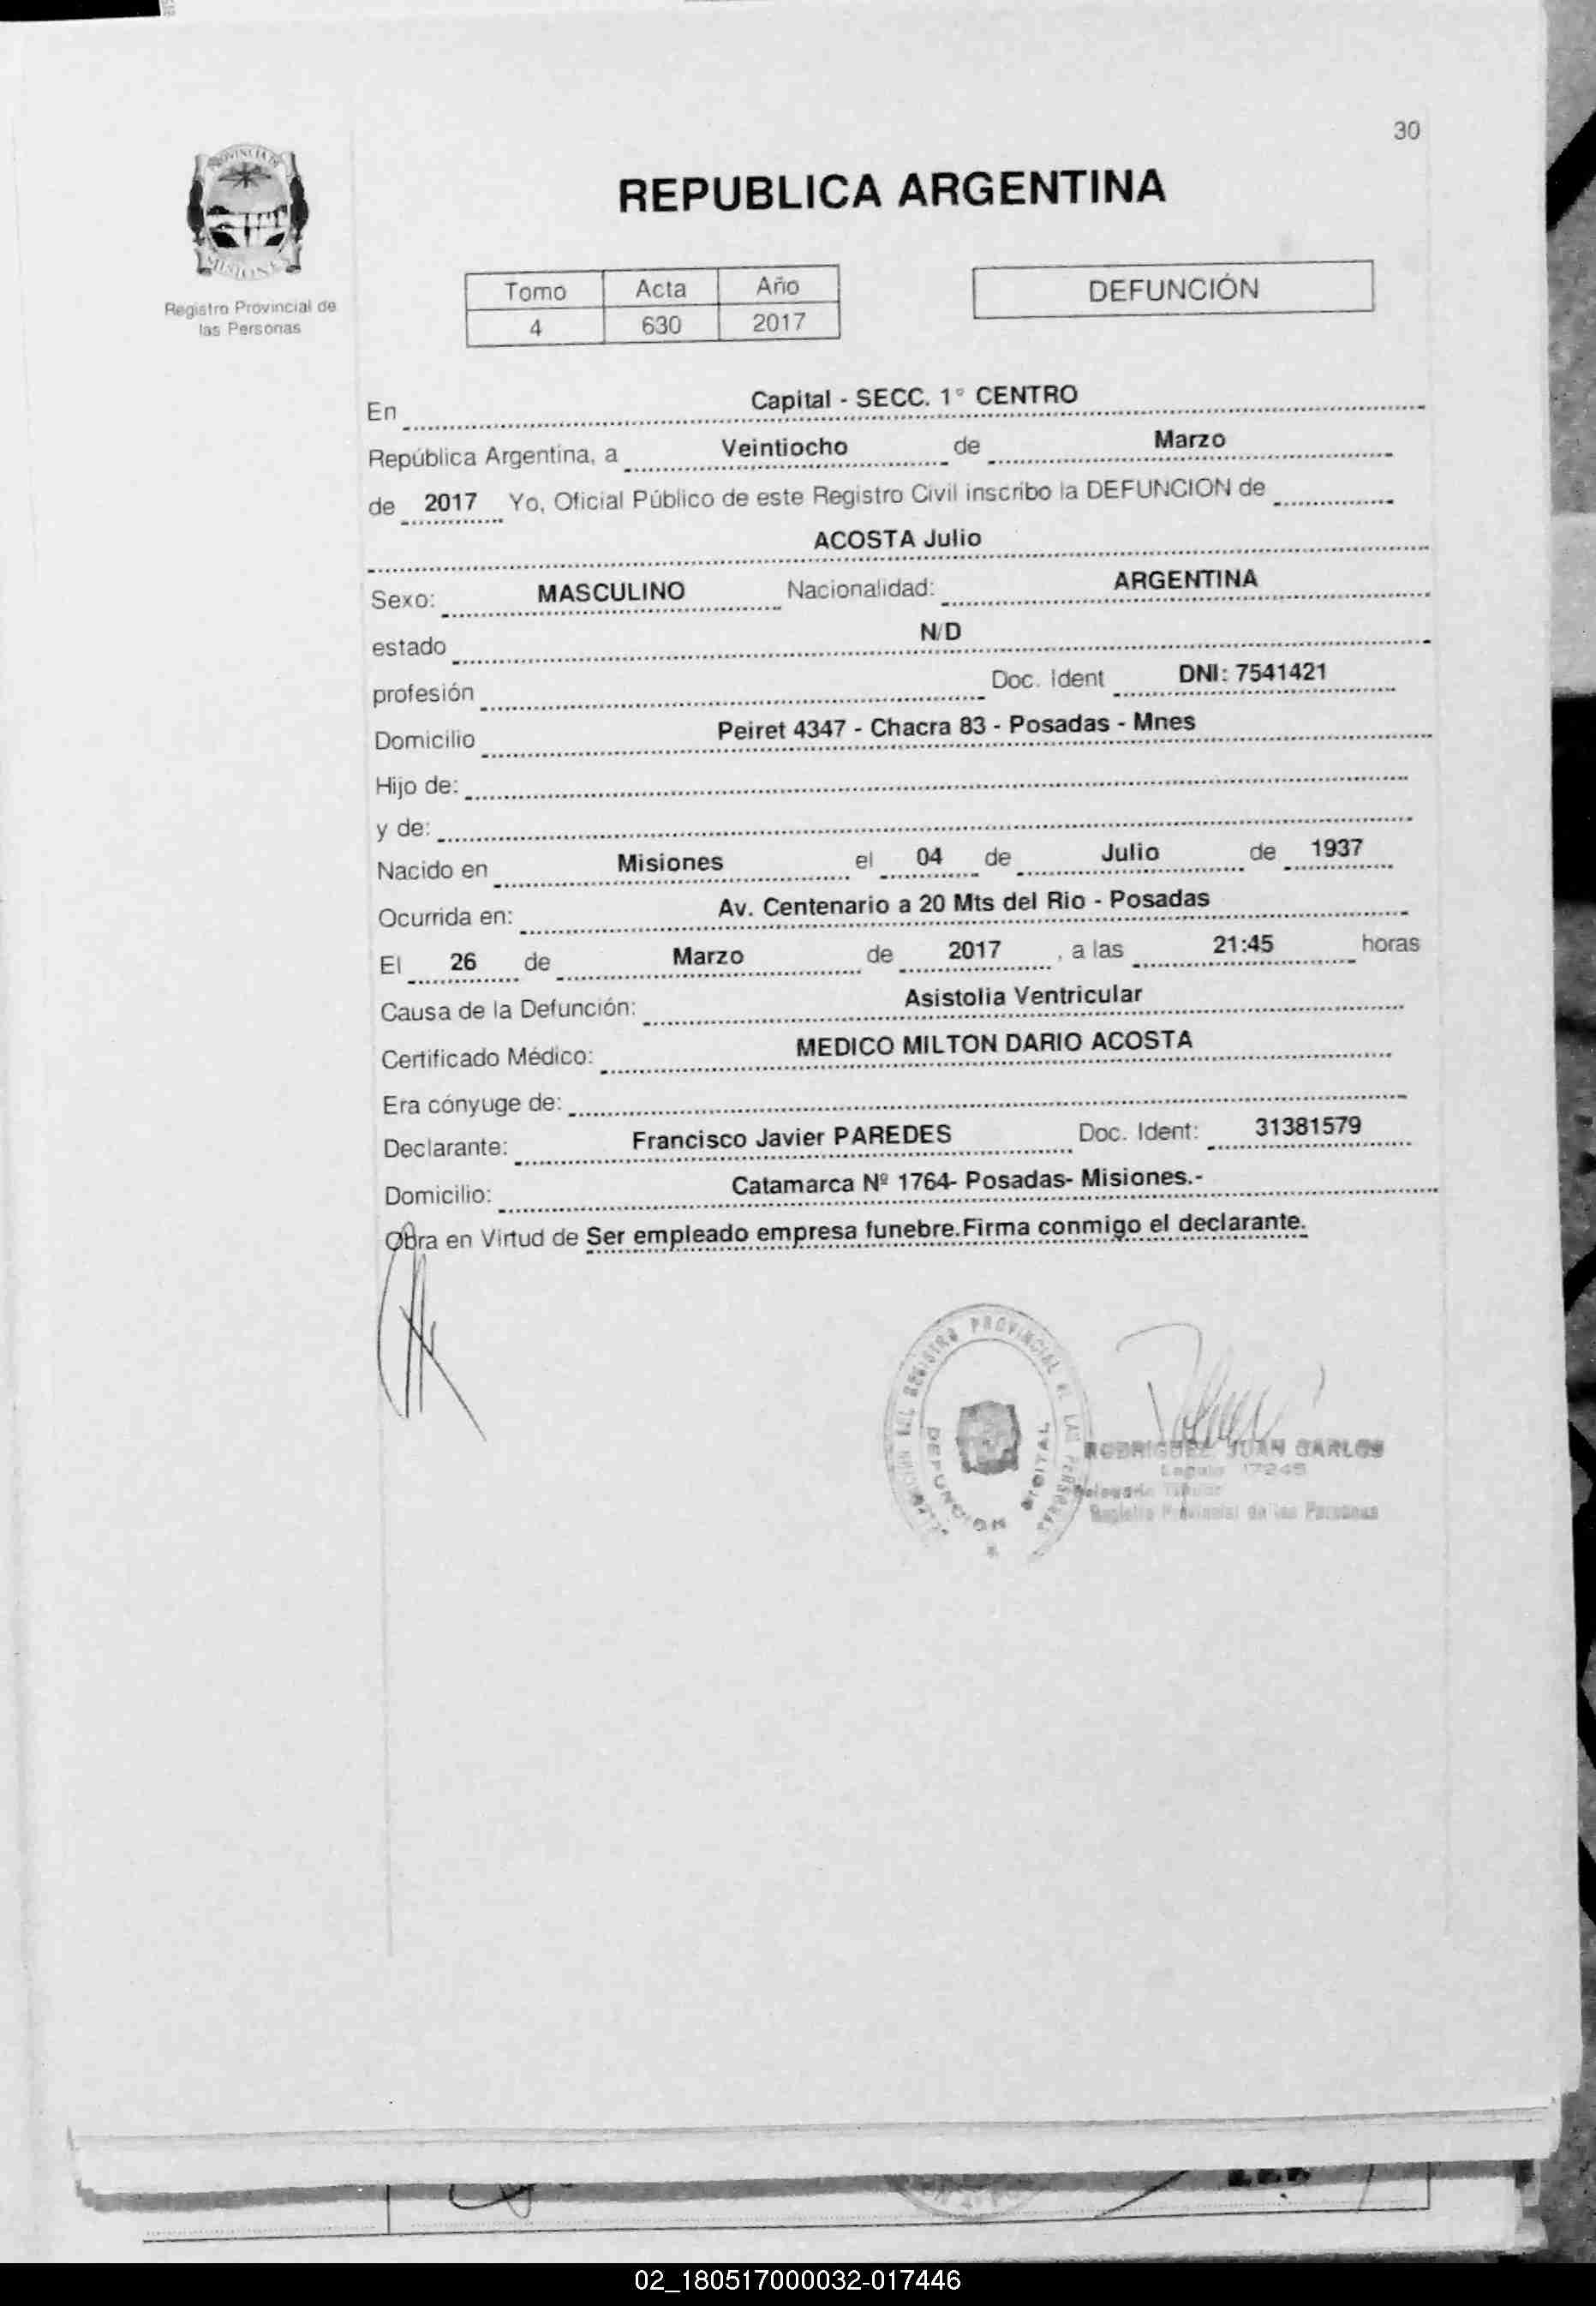 30
PROVINCIA DE
MISIONES
Registro Provincial de
las Personas
REPUBLICA ARGENTINA
Tomo Acta Año
4 630 2017
DEFUNCIÓN
En Capital - SECC. 1° CENTRO
República Argentina, a Veintiocho de Marzo
de 2017 Yo, Oficial Público de este Registro Civil inscribo la DEFUNCION de
ACOSTA Julio
Sexo: MASCULINO Nacionalidad: ARGENTINA
estado N/D
profesión Doc. Ident DNI: 7541421
Domicilio Peiret 4347 - Chacra 83 - Posadas - Mnes
Hijo de:
y de:
Nacido en Misiones el 04 de Julio de 1937
Ocurrida en: Av. Centenario a 20 Mts del Rio - Posadas
El 26 de Marzo de 2017 , a las 21:45 horas
Causa de la Defunción: Asistolia Ventricular
Certificado Médico: MEDICO MILTON DARIO ACOSTA
Era cónyuge de:
Declarante: Francisco Javier PAREDES Doc. Ident: 31381579
Domicilio: Catamarca Nº 1764- Posadas- Misiones.-
Obra en Virtud de Ser empleado empresa funebre.Firma conmigo el declarante.
REGISTRO PROVINCIAL DE LAS PERSONAS
DEFUNCION DIGITAL
RODRIGUEZ JUAN CARLOS
Legajo 17245
Delegado Titular
Registro Provincial de las Personas
02_180517000032-017446